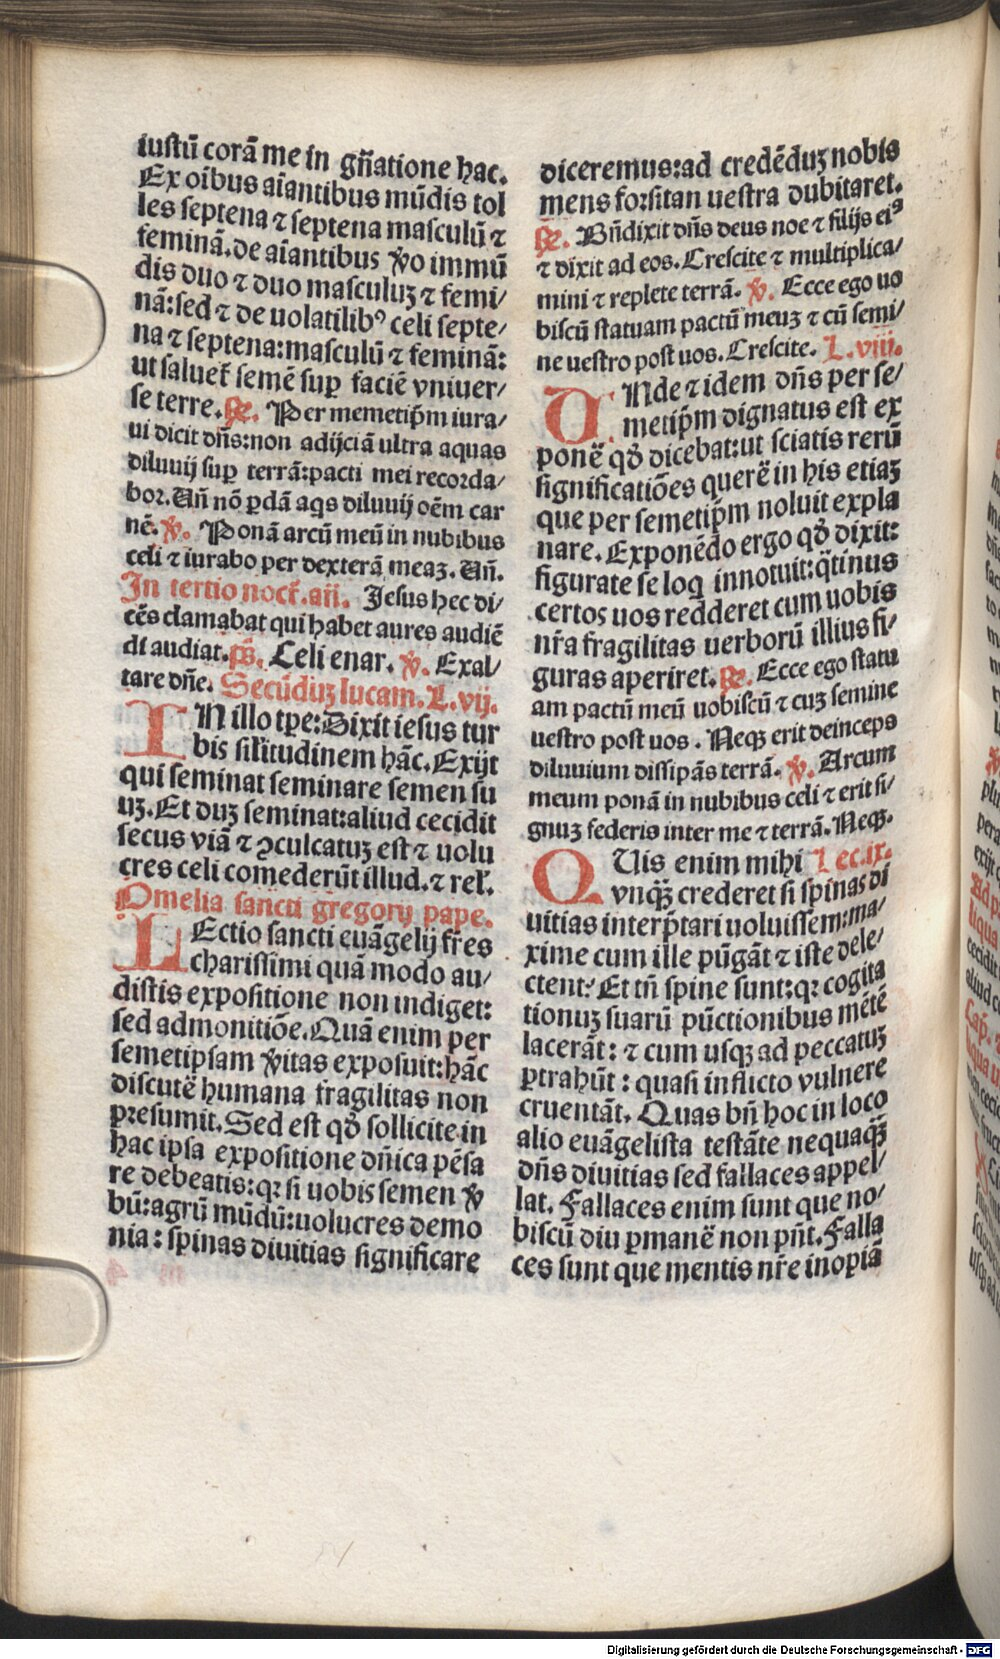 iustū corā me in gn̄atione hac.
Ex oībus aīantibus mūdis tol
les septena ⁊ septena masculū ⁊
feminā. de aīantibus ꝟo immū
dis duo ⁊ duo masculuʒ ⁊ femi/
nā: sed ⁊ de uolatilibꝰ celi septe/
na ⁊ septena: masculū ⁊ feminā:
ut saluet̄ semē suꝑ faciē vniuer/
se terre. ℟. Per memetip̄m iura/
ui dicit dn̄s: non adijciā ultra aquas
diluuij suꝑ terrā: pacti mei recorda/
bor. Un̄ nō ꝑdā aq̄s diluuij oēm car
nē. ℣. Ponā arcū meū in nubibus
celi ⁊ iurabo per dexterā meaʒ. Un̄.
In tertio noct̄. an̄. Jesus hec di/
cēs clamabat qui habet aures audiē
di audiat. ps̄. Celi enar. ℣. Exal/
tare dn̄e. Secūdūʒ lucam. L. vij.
IN illo tp̄e: Dixit iesus tur
bis sil̄itudinem hāc. Exijt
qui seminat seminare semen su
uʒ. Et duʒ seminat: aliud cecidit
secus viā ⁊ ꝯculcatuʒ est ⁊ uolu
cres celi comederūt illud. ⁊ rel̄.
Omelia sancti gregorij pape.
LEctio sancti euāgelij fr̄es
charissimi quā modo au/
distis expositione non indiget:
sed admonitiōe. Quā enim per
semetipsam ꝟitas exposuit: hāc
discutē humana fragilitas non
presumit. Sed est qd̄ sollicite in
hac ipsa expositione dn̄ica pēsa
re debeatis: qꝛ si uobis semen ꝟ
bū: agrū mūdū: uolucres demo
nia: spinas diuitias significare
diceremus: ad credēduʒ nobis
mens forsitan uestra dubitaret.
℟. Bn̄dixit dn̄s deus noe ⁊ filijs eiꝰ
⁊ dixit ad eos. Crescite ⁊ multiplica/
mini ⁊ replete terrā. ℣. Ecce ego uo
biscū statuam pactū meuʒ ⁊ cū semi/
ne uestro post uos. Crescite. L. viii.
UNde ⁊ idem dn̄s per se/
metip̄m dignatus est ex
ponē qd̄ dicebat: ut sciatis rerū
significatiōes querē in his etiaʒ
que per semetip̄m noluit expla
nare. Exponēdo ergo qd̄ dixit:
figurate se loq̄ innotuit: q̄tinus
certos uos redderet cum uobis
nr̄a fragilitas uerborū illius fi/
guras aperiret. ℟. Ecce ego statu
am pactū meū uobiscū ⁊ cuʒ semine
uestro post uos. Neqʒ erit deinceps
diluuium dissipās terrā. ℣. Arcum
meum ponā in nubibus celi ⁊ erit si/
gnuʒ federis inter me ⁊ terrā. Neqʒ.
QUis enim mihi Lec. ix.
vnq̄ʒ crederet si spinas di
uitias interp̄tari uoluissem: ma/
xime cum ille pūgāt ⁊ iste dele/
ctent? Et tn̄ spine sunt: qꝛ cogita
tionuʒ suarū pūctionibus mētē
lacerāt: ⁊ cum usqʒ ad peccatuʒ
ꝑtrahūt: quasi inflicto vulnere
cruentāt. Quas bn̄ hoc in loco
alio euāgelista testāte nequaq̄ʒ
dn̄s diuitias sed fallaces appel/
lat. Fallaces enim sunt que no/
biscū diu ꝑmanē non pn̄t. Falla
ces sunt que mentis nr̄e inopiā
Digitalisierung gefördert durch die Deutsche Forschungsgemeinschaft - DFG